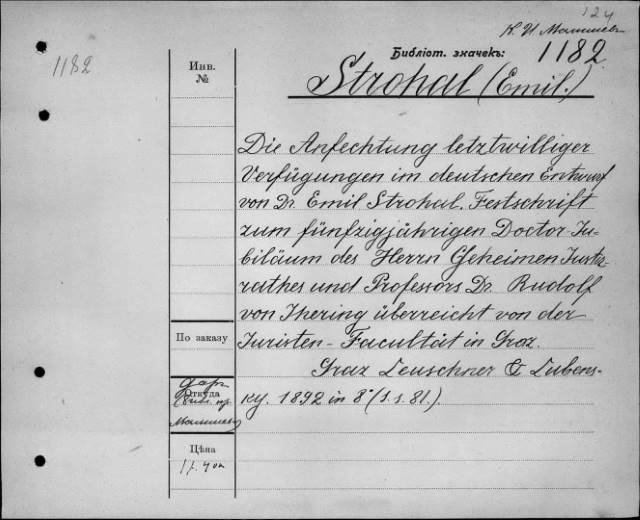 124
К. И. Малышев
1182
Инв.
№
Библіот. значекъ:
1182
Strohal (Emil.)
Die Anfechtung letztwilliger
Verfügungen im deutschen Entwurf
von Dr. Emil Strohal. Festschrift
zum fünfzigjährigen Doctor-Ju-
biläum des Herrn Geheimen Justiz-
rathes und Professors Dr. Rudolf
von Jhering überreicht von der
Juristen-Facultät in Graz.
Graz Leuschner & Lubens-
ky. 1892 in 8° (S.s. 81.).
По заказу
Откуда
дар
Малышева
Цѣна